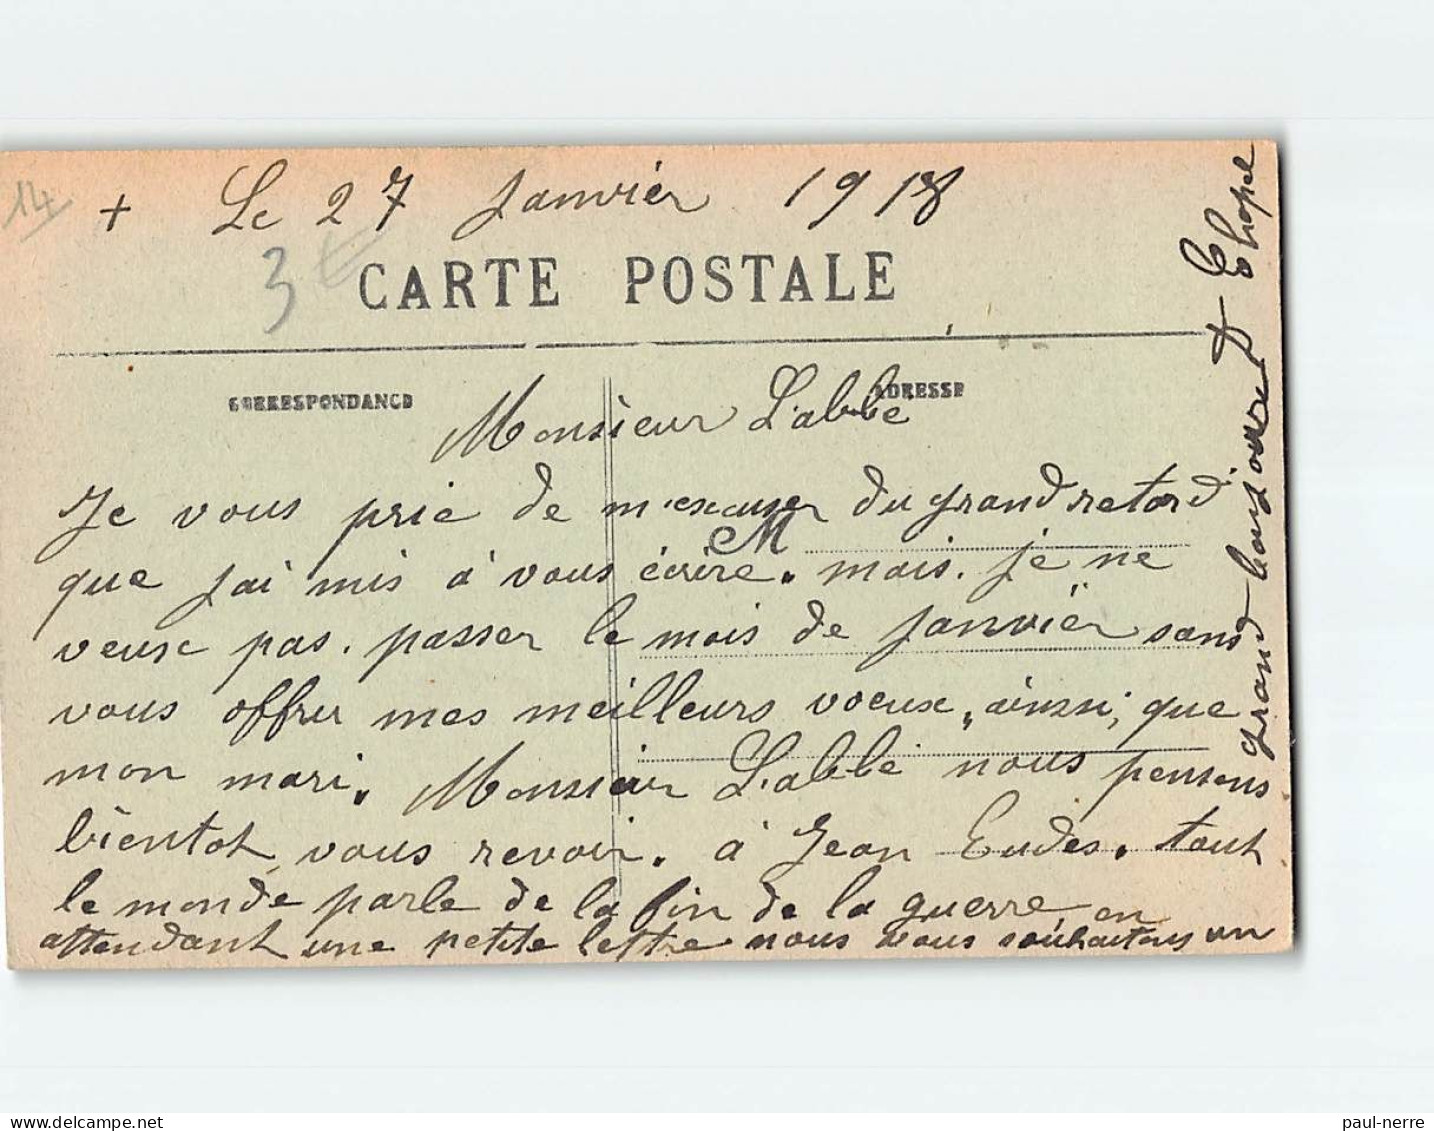 14
+ Le 27 Janvier 1918
3 €
CARTE POSTALE
CORRESPONDANCE
ADRESSE
Monsieur L'abbé
Je vous prie de m'excuser du grand retard
M
que j'ai mis à vous écire. mais. je ne
veux pas. passer le mois de Janvier sans
vous offrir mes meilleurs voeux, ainsi, que
mon mari. Monsieur L'abbé nous pensons
bientot vous revoir. à Jean Eudes. tout
le monde parle de la fin de la guerre en
attendant une petite lettre nous vous souhaitons un
grand bonjour
paul-nerre